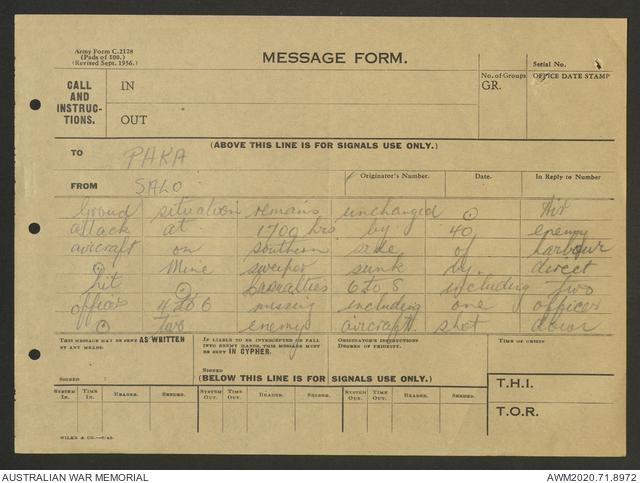 Army Form C.2128
(Pads of 100.)
(Revised Sept. 1936.)
MESSAGE FORM.
Serial No.
CALL AND INSTRUC-TIONS.
IN
OUT
No. of Groups
GR.
OFFICE DATE STAMP
(ABOVE THIS LINE IS FOR SIGNALS USE ONLY.)
TO PAKA
FROM SALO
Originator's Number.
Date.
In Reply to Number
Ground situation remains unchanged . Air
attack at 1700 hrs by 40 enemy
aircraft on southern side of harbour
. Mine sweeper sunk by direct
hit . Casualties 6 to 8 including two
officers 4 to 6 missing including one officer
. Two enemy aircraft shot down
THIS MESSAGE MAY BE SENT AS WRITTEN
BY ANY MEANS.
SIGNED
IF LIABLE TO BE INTERCEPTED OR FALL
INTO ENEMY HANDS, THIS MESSAGE MUST
BE SENT IN CYPHER.
SIGNED
ORIGINATOR'S INSTRUCTIONS
DEGREE OF PRIORITY.
TIME OF ORIGIN
(BELOW THIS LINE IS FOR SIGNALS USE ONLY.)
SYSTEM IN. TIME IN. READER. SENDER. SYSTEM OUT. TIME OUT. READER. SENDER. SYSTEM OUT. TIME OUT. READER. SENDER.
T.H.I.
T.O.R.
AUSTRALIAN WAR MEMORIAL
AWM2020.71.8972